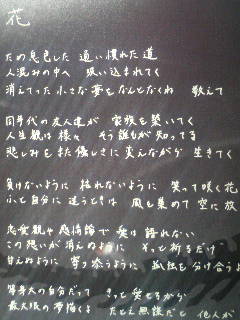 花
ため息色した 通い慣れた道
人混みの中へ 吸い込まれてく
消えてった小さな夢をなんとなくね 数えて
同年代の友人達が 家族を築いてく
人生観は様々 そう誰もが知ってる
悲しみをまた優しさに変えながら 生きてく
負けないように 枯れないように 笑って咲く花
ふと自分に迷うときは 風を集めて空に放
恋愛観や感情論で 愛は語れない
この想いが消えぬように そっと祈るだけ
甘えぬように 寄り添うように 孤独を分け合うよ
等身大の自分だって きっと愛せるから
最大限の夢描くよ たとえ無謀だと 他人が